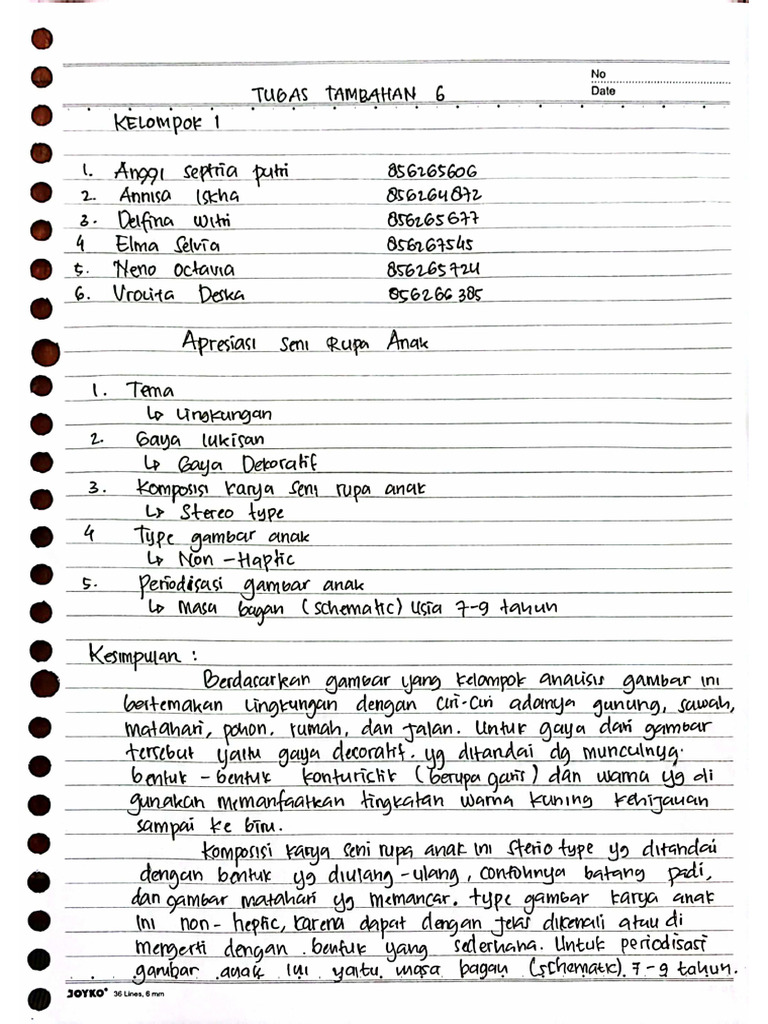 No
Date
TUGAS TAMBAHAN 6
KELOMPOK 1
1. Anggi septria putri 856265606
2. Annisa Iskha 856264872
3. Delfina Witri 856265677
4 Elma Selvia 856267545
5. Neno Octavia 856265724
6. Vrolita Deska 856266385
Apresiasi Seni Rupa Anak
1. Tema
↳ Lingkungan
2. Gaya lukisan
↳ Gaya Dekoratif
3. Komposisi karya seni rupa anak
↳ Stereo type
4 Type gambar anak
↳ Non - Haptic
5. Periodisasi gambar anak
↳ Masa bagan (schematic) Usia 7-9 tahun
Kesimpulan :
Berdasarkan gambar yang kelompok analisis gambar ini
bertemakan lingkungan dengan ciri-ciri adanya gunung, sawah,
matahari, pohon, rumah, dan jalan. Untuk gaya dari gambar
tersebut yaitu gaya decoratif. yg ditandai dg munculnya
bentuk-bentuk konturistik (berupa garis) dan warna yg di
gunakan memanfaatkan tingkatan warna kuning kehijauan
sampai ke biru.
Komposisi karya seni rupa anak ini sterio type yg ditandai
dengan bentuk yg diulang-ulang, contohnya batang padi,
dan gambar matahari yg memancar. type gambar karya anak
ini non-heptic, karena dapat dengan jelas dikenali atau di
mergerti dengan bentuk yang sederhana. Untuk periodisasi
gambar anak ini yaitu masa bagan (schematic) 7-9 tahun.
JOYKO 36 Lines, 6 mm